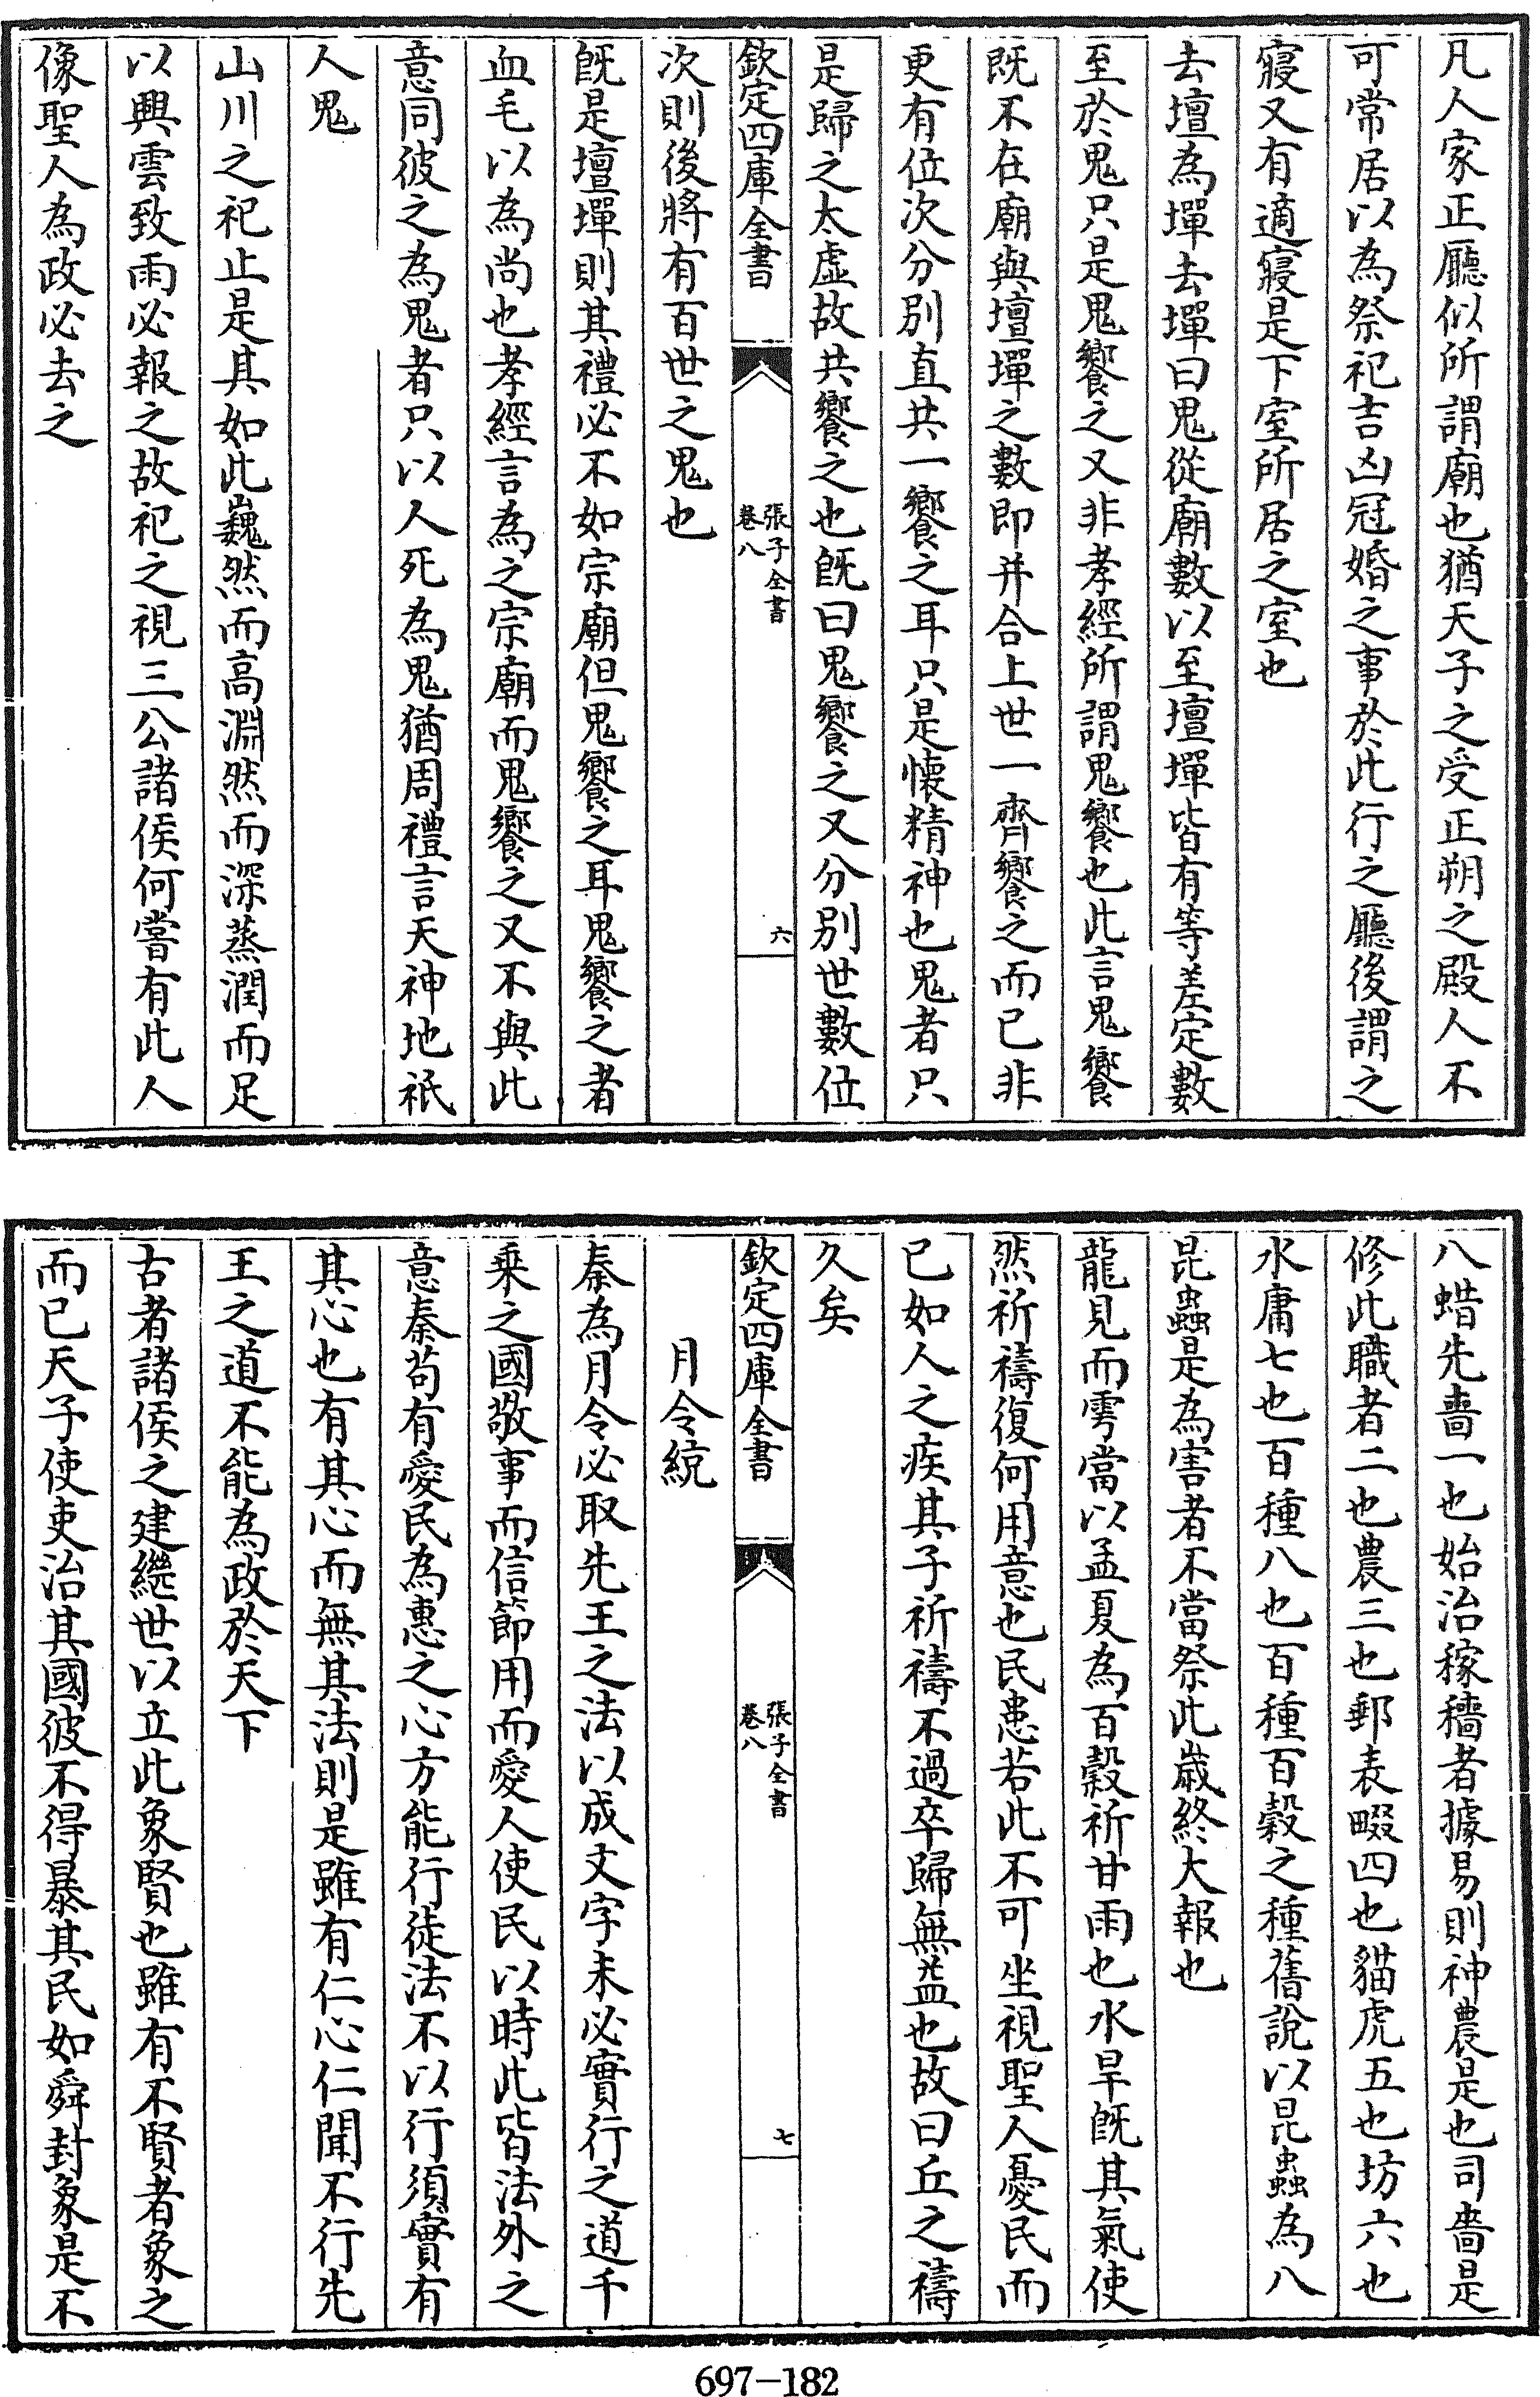 凡人家正廳似所謂廟也猶天子之受正朔之殿人不
可常居以為祭祀吉凶冠婚之事於此行之廳後謂之
寢又有適寢是下室所居之室也
去壇為墠去墠曰鬼從廟數以至壇墠皆有等差定數
至於鬼只是鬼饗之又非孝經所謂鬼饗也此言鬼饗
既不在廟與壇墠之數即并合上世一齊饗之而已非
更有位次分别直共一饗之耳只是懷精神也鬼者只
是歸之太虚故共饗之也既曰鬼饗之又分别世數位
欽定四庫全書
張子全書
卷八
六
次則後將有百世之鬼也
既是壇墠則其禮必不如宗廟但鬼饗之耳鬼饗之者
血毛以為尚也孝經言為之宗廟而鬼饗之又不與此
意同彼之為鬼者只以人死為鬼猶周禮言天神地祇
人鬼
山川之祀止是其如此巍然而高淵然而深蒸潤而足
以興雲致雨必報之故祀之視三公諸侯何嘗有此人
像聖人為政必去之
八蜡先嗇一也始治稼穡者據易則神農是也司嗇是
修此職者二也農三也郵表畷四也貓虎五也坊六也
水庸七也百種八也百種百穀之種舊說以昆蟲為八
昆蟲是為害者不當祭此歲終大報也
龍見而雩當以孟夏為百穀祈甘雨也水旱既其氣使
然祈禱復何用意也民患若此不可坐視聖人憂民而
已如人之疾其子祈禱不過卒歸無益也故曰丘之禱
久矣
欽定四庫全書
張子全書
卷八
七
月令統
秦為月令必取先王之法以成文字未必實行之道千
乘之國敬事而信節用而愛人使民以時此皆法外之
意秦苟有愛民為惠之心方能行徒法不以行須實有
其心也有其心而無其法則是雖有仁心仁聞不行先
王之道不能為政於天下
古者諸侯之建繼世以立此象賢也雖有不賢者象之
而已天子使吏治其國彼不得暴其民如舜封象是不
697-182